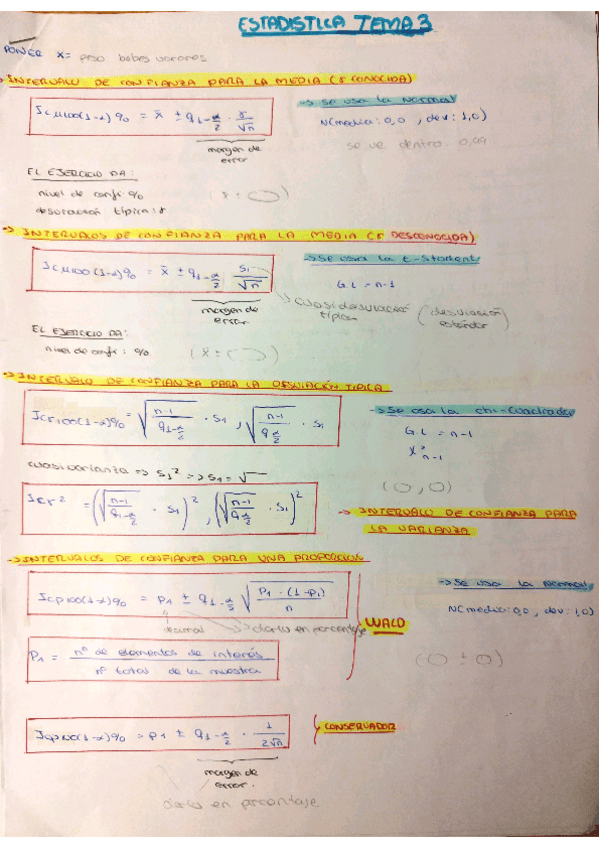 ESTADISTICA TEMA 3
PONER X = peso bebes varones
→ INTERVALO DE CONFIANZA PARA LA MEDIA (σ CONOCIDA)
ICμ100(1-α)% = x̄ ± q1-α/2 · σ/√n
margen de error
→ Se usa la Normal
N(media: 0,0 , dev: 1,0)
se ve dentro: 0,99
EL EJERCICIO DA:
nivel de conf: %
desviación típica: σ
→ INTERVALOS DE CONFIANZA PARA LA MEDIA (σ DESCONOCIDA)
ICμ100(1-α)% = x̄ ± q1-α/2 · S1/√n
margen de error
→ Se usa la t-Student
G.L = n-1
cuasidesviación típica (desviación estándar)
EL EJERCICIO DA:
nivel de conf: %
→ INTERVALO DE CONFIANZA PARA LA DESVIACIÓN TIPICA
ICσ100(1-α)% = √(n-1/q1-α/2) · S1 , √(n-1/qα/2) · S1
→ Se usa la chi-cuadrado
G.L = n-1
X²n-1
(0,0)
cuasivarianza => S1² => S1 = √
ICσ² = (√(n-1/q1-α/2) · S1)² , (√(n-1/qα/2) · S1)²
→ INTERVALO DE CONFIANZA PARA LA VARIANZA
→ INTERVALOS DE CONFIANZA PARA UNA PROPORCION
ICp100(1-α)% = P1 ± q1-α/2 √(P1 · (1-P1)/n)
decimal → darlo en porcentaje
WALD
→ Se usa la Normal
N(media: 0,0 , dev: 1,0)
(0 ± 0)
P1 = nº de elementos de interés / nº total de la muestra
ICp100(1-α)% = P1 ± q1-α/2 · 1/2√n
CONSERVADOR
margen de error
darlos en porcentaje